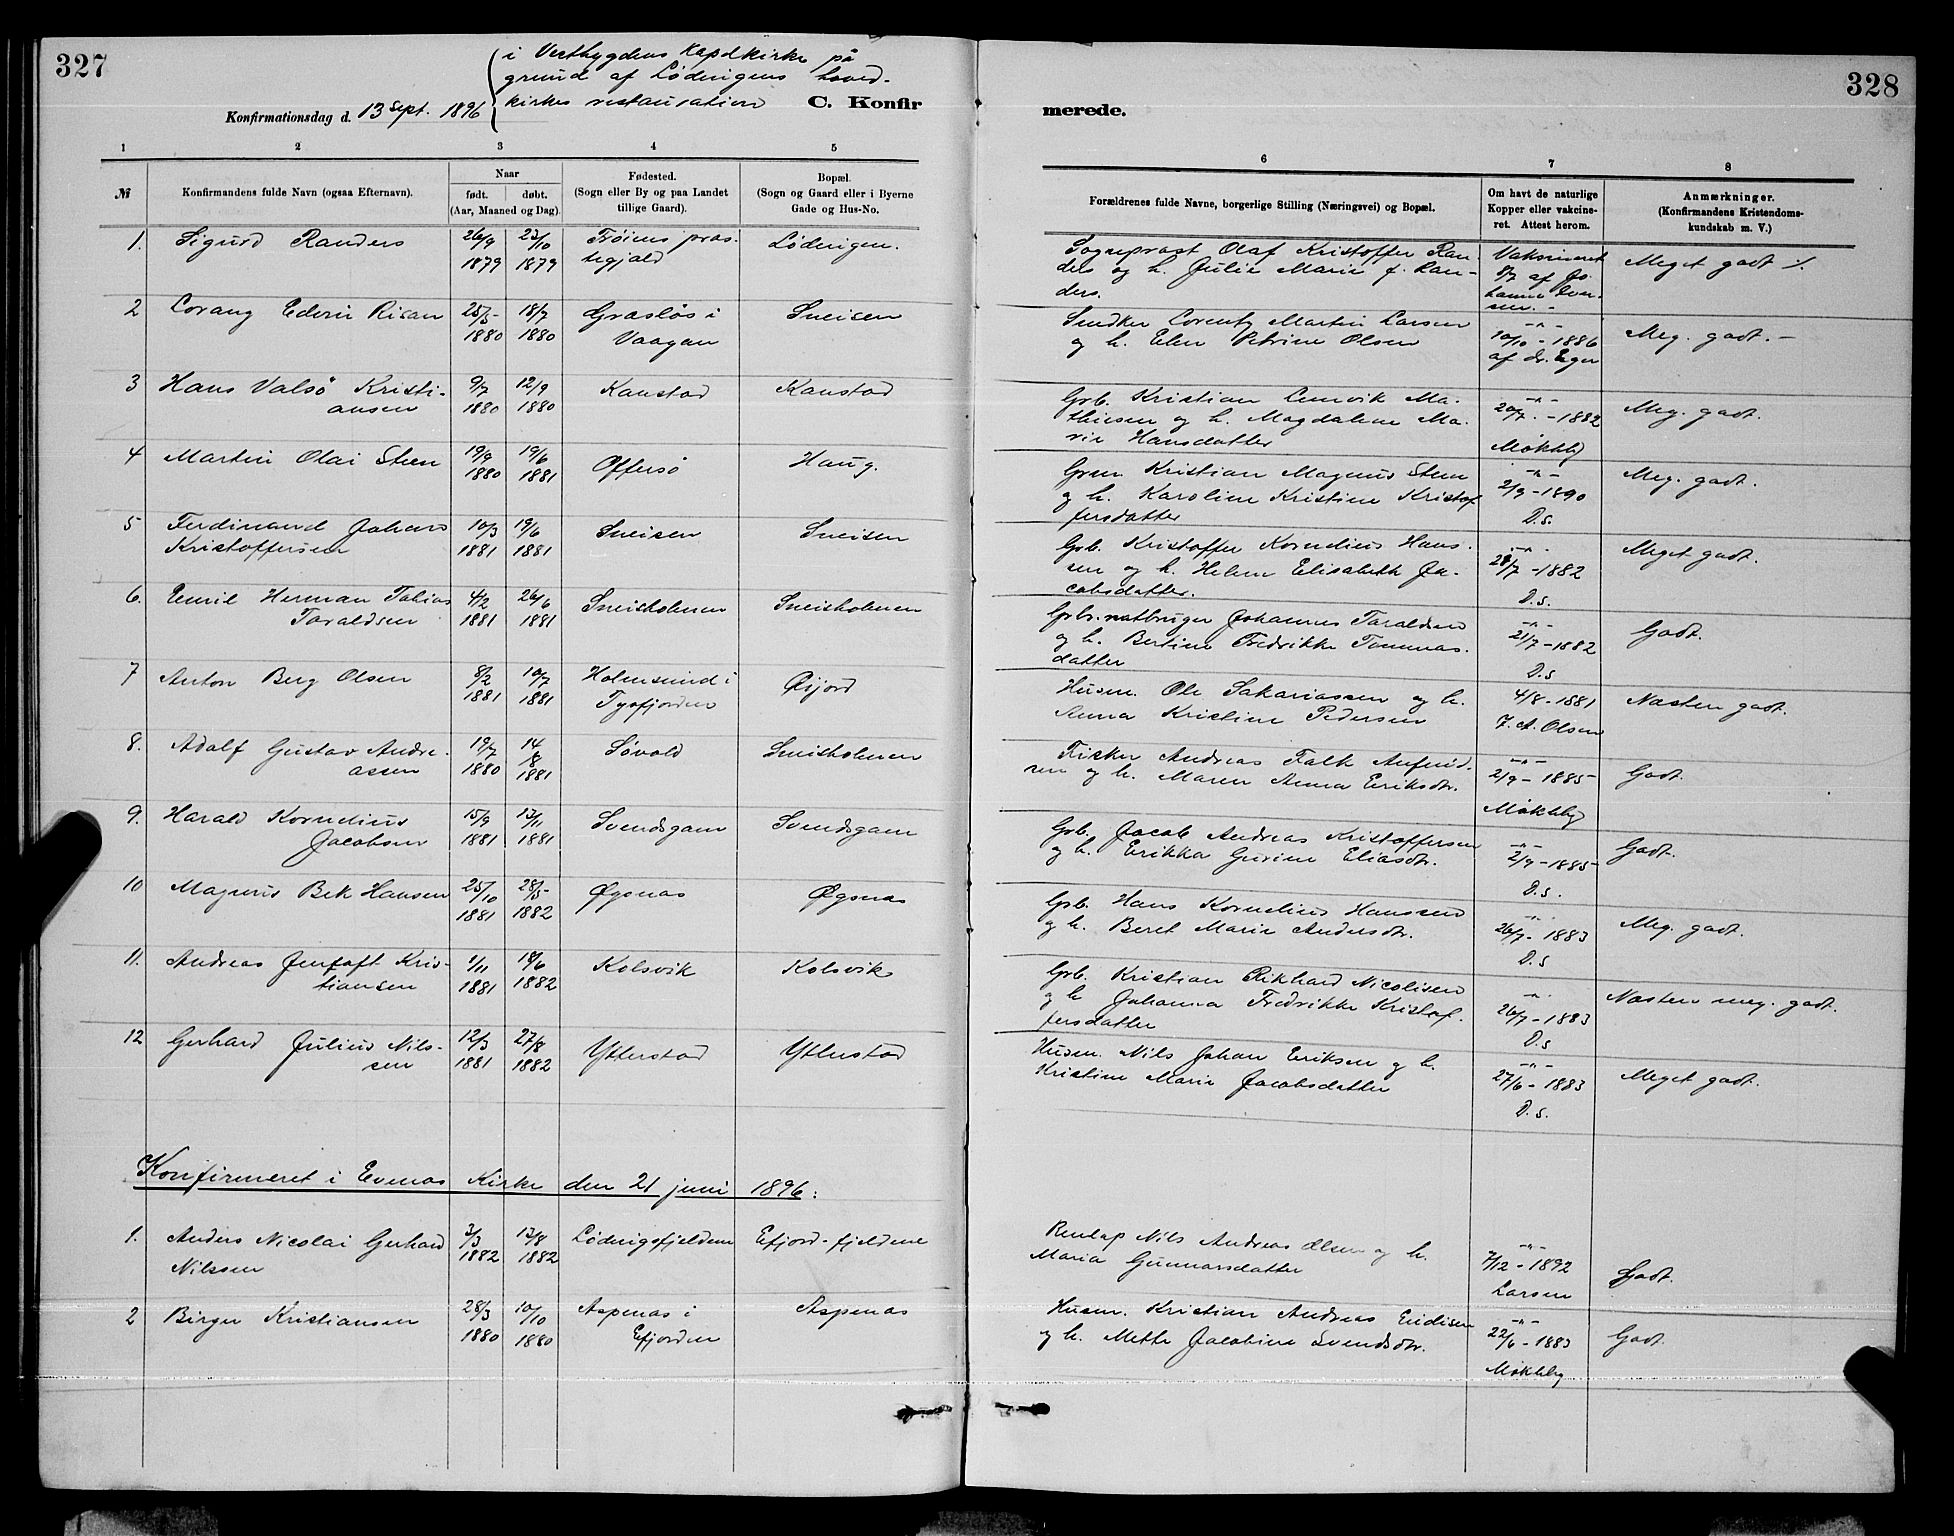 327
328
i Vestbygdens Kapelkirke på
grund af Lødingens hoved-
kirkes restauration
Konfirmationsdag d. 13 Sept. 1896
C. Konfir
merede.
1 2 3 4 5 6 7 8
№
Konfirmandens fulde Navn (ogsaa Efternavn).
Naar
født. døbt.
(Aar, Maaned og Dag).
Fødested.
(Sogn eller By og paa Landet
tillige Gaard).
Bopæl.
(Sogn og Gaard eller i Byerne
Gade og Hus-No.
Forældrenes fulde Navne, borgerlige Stilling (Næringsvei) og Bopæl.
Om havt de naturlige
Kopper eller vakcine-
ret. Attest herom.
Anmærkninger.
(Konfirmandens Kristendoms-
kundskab m. V.)
1. Sigurd Randers 26/9 1879 23/10 1879 Trøiens præs-
tegjæld Lødingen.
Sognepræst Olaf Kristoffer Ran-
ders og h. Julie Marie f. Ran-
ders.
Vaksineret
af Jo-
hanne Iver-
sen. -
Meget godt
2 Lorang Edvin Risan 25/5- 1880 18/7 1880 Græsløs i
Vaagan Sneisen
Smdkr Lorentz Martin Larsen
og h. Elen Petrine Olsen
-"-
10/10 - 1886
af dr. Eger
Meg. godt. -
3 Hans Valsö Kristi-
ansen 9/7 1880 12/9 1880 Kanstad Kanstad
Grb. Kristian Lemvik Ma-
thiesen og h. Magdalena Ma-
rie Hansdatter
-"-
20/7. - 1882
Møkleby
Meg. godt.
4 Martin Olai Steen 19/9 1880 19/6 1881 Offersø Haug.
Grm Kristian Magnus Steen
og h. Karoline Kristine Kristof
fersdatter
-"-
2/9 - 1890
D.s.
Meg. godt.
5 Ferdinand Johans
Kristoffersen 10/3 1881 19/6 1881 Sneisen Sneisen
Grb. Kristoffer Kornelius Hans-
sen og h. Helene Elisabeth Ja-
cobsdatter.
-"-
28/7 - 1882
D.s.
Meget godt.
6. Emil Herman Tobias
Taraldsen 4/2 1881 26/6 1881 Sneisholmen Sneisholmen
Grbr. natbruger Johannes Taraldsen
og h. Bertine Fredrikke Tommas-
datter
-"-
21/7 - 1882
D.s
Godt.
7 Anton Berg Olsen 8/2 1881 10/7 1881 Holmsund i
Tysfjorden Øijord
Husm. Ole Sakariassen og h.
Anna Kristine Pedersen
4/8 - 1881
F. A. Olsen
Næsten godt.
8. Adolf Gustav Andre-
assen 19/7 1880 14/8 1881 Søvold Sneisholmen
Fisker Andreas Falk Anfind-
sen og h. Maren Anna Eriksdtr.
-"-
2/9 - 1885
Møkleby
Godt.
9. Harald Kornelius
Jacobsen 15/9 1881 13/11 1881 Svendsgam Svendsgam
Grb. Jacob Andreas Kristoffersen
og h. Erikka Gurine Eliasdtr.
-"-
2/9 - 1885
D.s.
Godt.
10 Magnus Bek Hansen 25/10 1881 28/5- 1882 Øgsnæs Øgsnæs
Grb. Hans Kornelius Hanssen
og h. Beret Marie Andersdtr.
-"-
26/7 - 1883
D.s
Meg. godt.
11. Andreas Jentoft Kris-
tiansen 1/11 1881 18/6 1882 Kolsvik Kolsvik
Grb. Kristian Rikhard Nicolisen
og h Johanna Fredrikke Kristof-
fersdatter
-"-
26/7 - 1883
D.s
Næsten meg. godt.
12 Gerhard Julius Nils-
sen 12/3 1881 27/8 1882 Ytterstad Ytterstad
Husm. Nils Johan Eriksen og h.
Kristine Marie Jacobsdatter
-"-
27/6 - 1883
D.s.
Meget godt.
Konfirmeret i Evenæs Kirke den 21 juni 1896:
1. Anders Nicolai Gerhard
Nilssen 3/3 1882 13/8 1882 Lødingsfjeldene Efjord-fjeldene
Renlap Nils Andreas Olsen og h.
Maria Gunnarsdatter
-"-
7/12 - 1892
Larsen
Godt.
2 Birger Kristiansen 28/3 1880 10/10 1880 Aspenæs i
Efjorden Aspenæs
Husm. Kristian Andreas Endisen
og h. Mette Jacobine Svendsdtr.
-"-
22/6 - 1883
Møkleby
Godt.